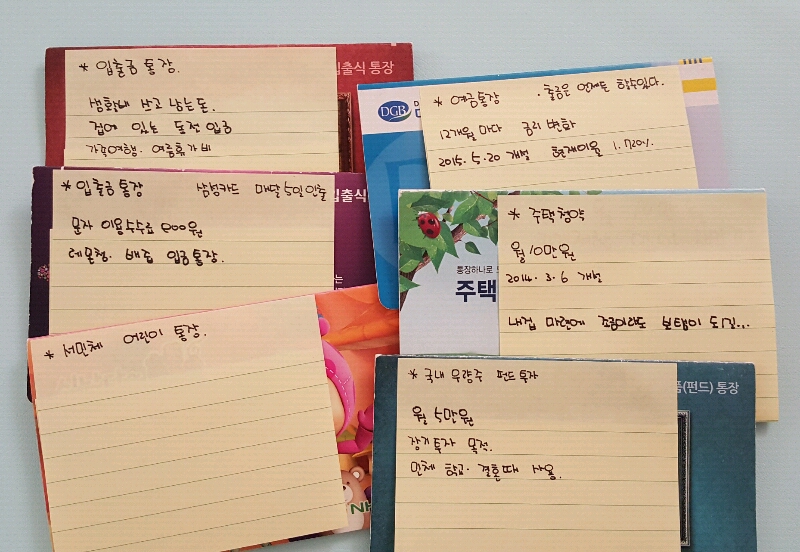 * 입출금 통장.
입출식 통장
생활비 쓰고 남는돈.
집에 있는 동전 입금
가족여행. 여름휴가비
* 입출금 통장 삼성카드 매달 5일 인출
입출식 통장
문자 이용수수료 800원
레몬청. 배즙 입금통장.
는
* 서민체 어린이 통장.
NH
DGB
* 예금통장 . 출금은 언제든 할수있다.
12개월 마다 금리 변화
2015. 5. 20 개설 현재이율 1.720%
통장하나로
주택
* 주택청약
월 10만원
2014. 3. 6 개설
내집 마련에 조금이라도 보탬이 되길...
품(펀드) 통장
* 국내 우량주 펀드 투자
월 5만원
장기 투자 목적.
민체 학교. 결혼때 사용.